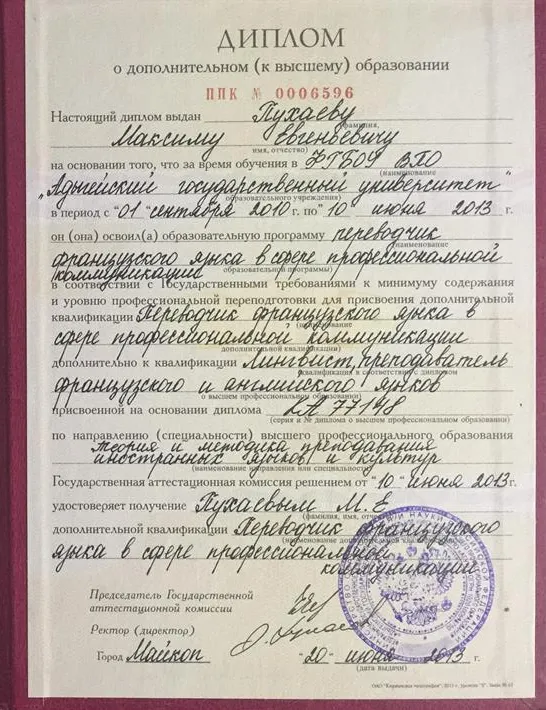 ДИПЛОМ
о дополнительном (к высшему) образовании
ППК № 0006596
Настоящий диплом выдан Пухаеву
(фамилия,
Максиму Евгеньевичу
имя, отчество)
на основании того, что за время обучения в ФГБОУ ВПО
(наименование
"Адыгейский государственный университет"
образовательного учреждения)
в период с "01" сентября 2010 г. по "10" июня 2013 г.
он (она) освоил(а) образовательную программу переводчик
(наименование
французского языка в сфере профессиональной
коммуникации
образовательной программы)
в соответствии с Государственными требованиями к минимуму содержания
и уровню профессиональной переподготовки для присвоения дополнительной
квалификации Переводчик французского языка в
(наименование
сфере профессиональной коммуникации
дополнительной квалификации)
дополнительно к квалификации Лингвист, преподаватель
(квалификация в соответствии с дипломом
французского и английского языков
о высшем профессиональном образовании)
присвоенной на основании диплома КА 77148
(серия и № диплома о высшем профессиональном образовании)
по направлению (специальности) высшего профессионального образования
Теория и методика преподавания
иностранных языков и культур
(наименование направления или специальности)
Государственная аттестационная комиссия решением от "10" июня 2013 г.
удостоверяет получение Пухаевым М.Е
(фамилия, имя, отчество)
дополнительной квалификации Переводчик французского
(наименование дополнительной
языка в сфере профессиональной
коммуникации
Председатель Государственной
аттестационной комиссии
Ректор (директор)
Город Майкоп "20" июня 2013 г.
(дата выдачи)